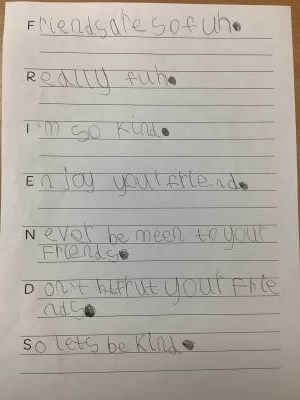 Friends are so fun.
Really fun.
I'm so kind.
Enjoy your friend.
Never be meen to your
Friends.
Don't your frie
nds.
So lets be kind.